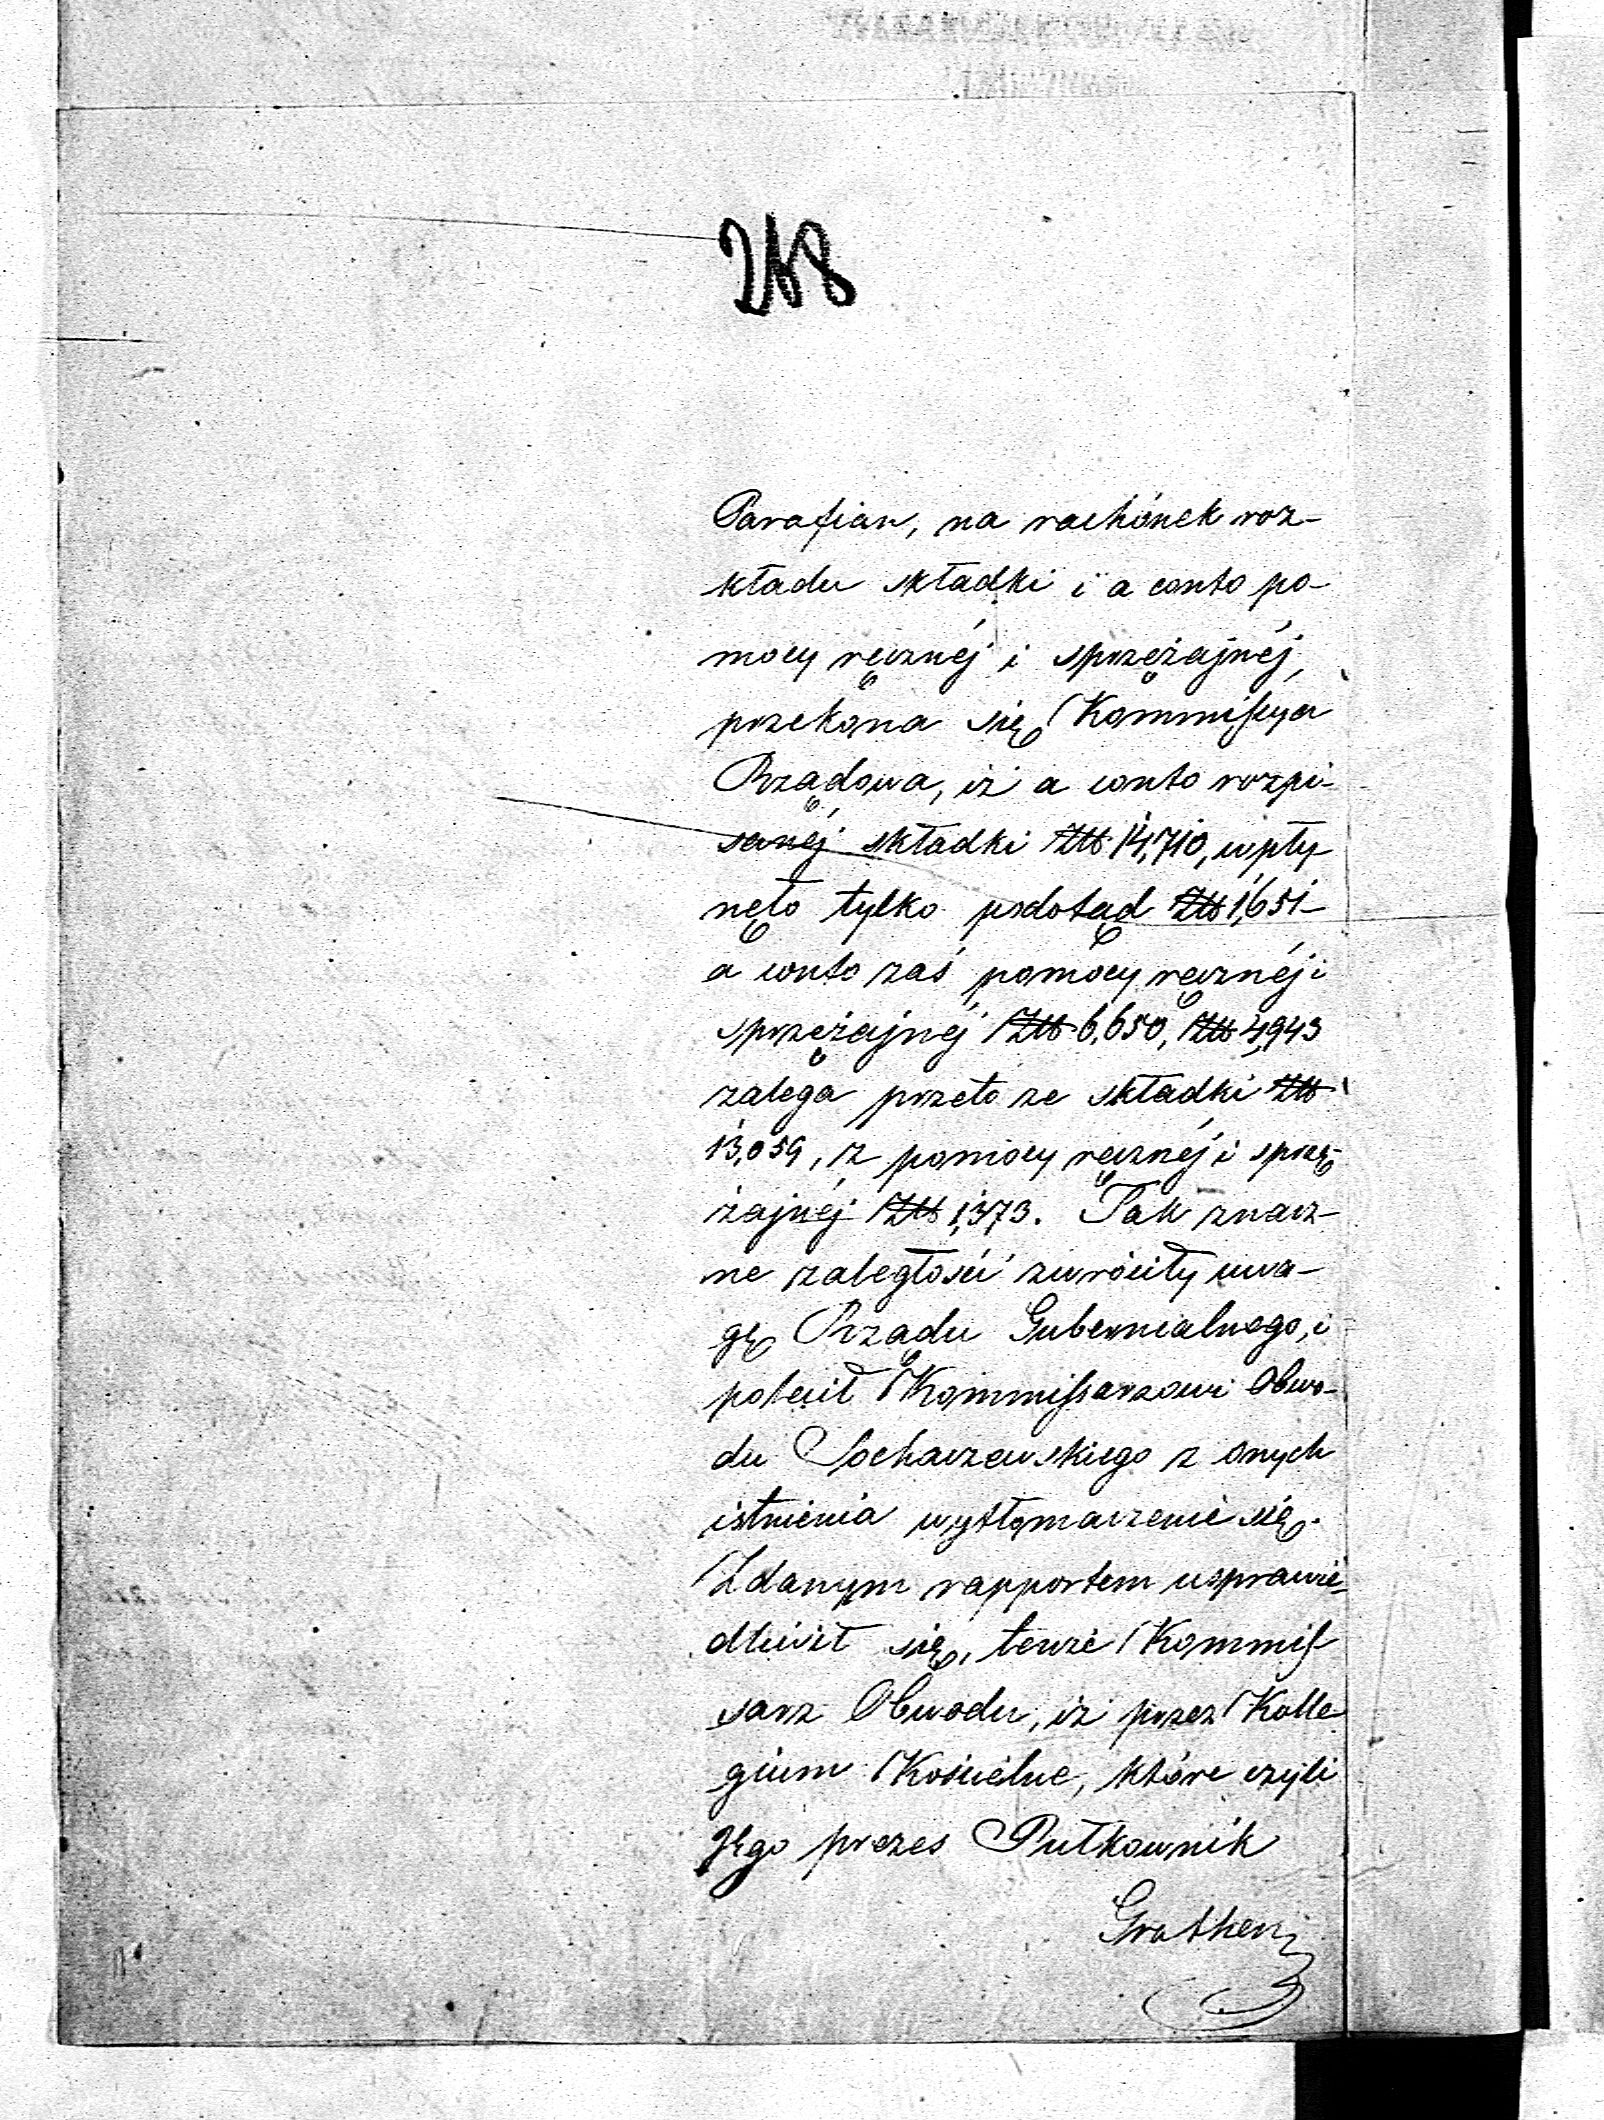 218
Parafian, na rachónek roz-
kładu składki i a conto po-
mocy ręcznéj i sprzężajnéj,
przekona się Kommissya
Rządowa, iż a conto rozpi-
sanéj składki Złt 14,710, wpły
nęło tylko podotąd Złt 1,651
a conto zaś pomocy ręcznéj i
sprzężajnéj Złt 6,650, Złt 4,943
zalega przeto ze składki Złt
13,059, z pomocy ręcznéj i sprzę-
żajnéj Złt 1,373. Tak znacz-
ne zaległości zwróciły uwa-
gę Rządu Gubernialnego, i
polecił Kommissarzowi Obwo-
du Sochaczewskiego z onych
istnienia wytłomaczenie się.
Zdanym rapportem usprawie-
dliwił się, tenże Kommis
sarz Obwodu, iż przez Kolle
gium Kościelne, które czyli
Jego prezes Pułkownik
Grathen